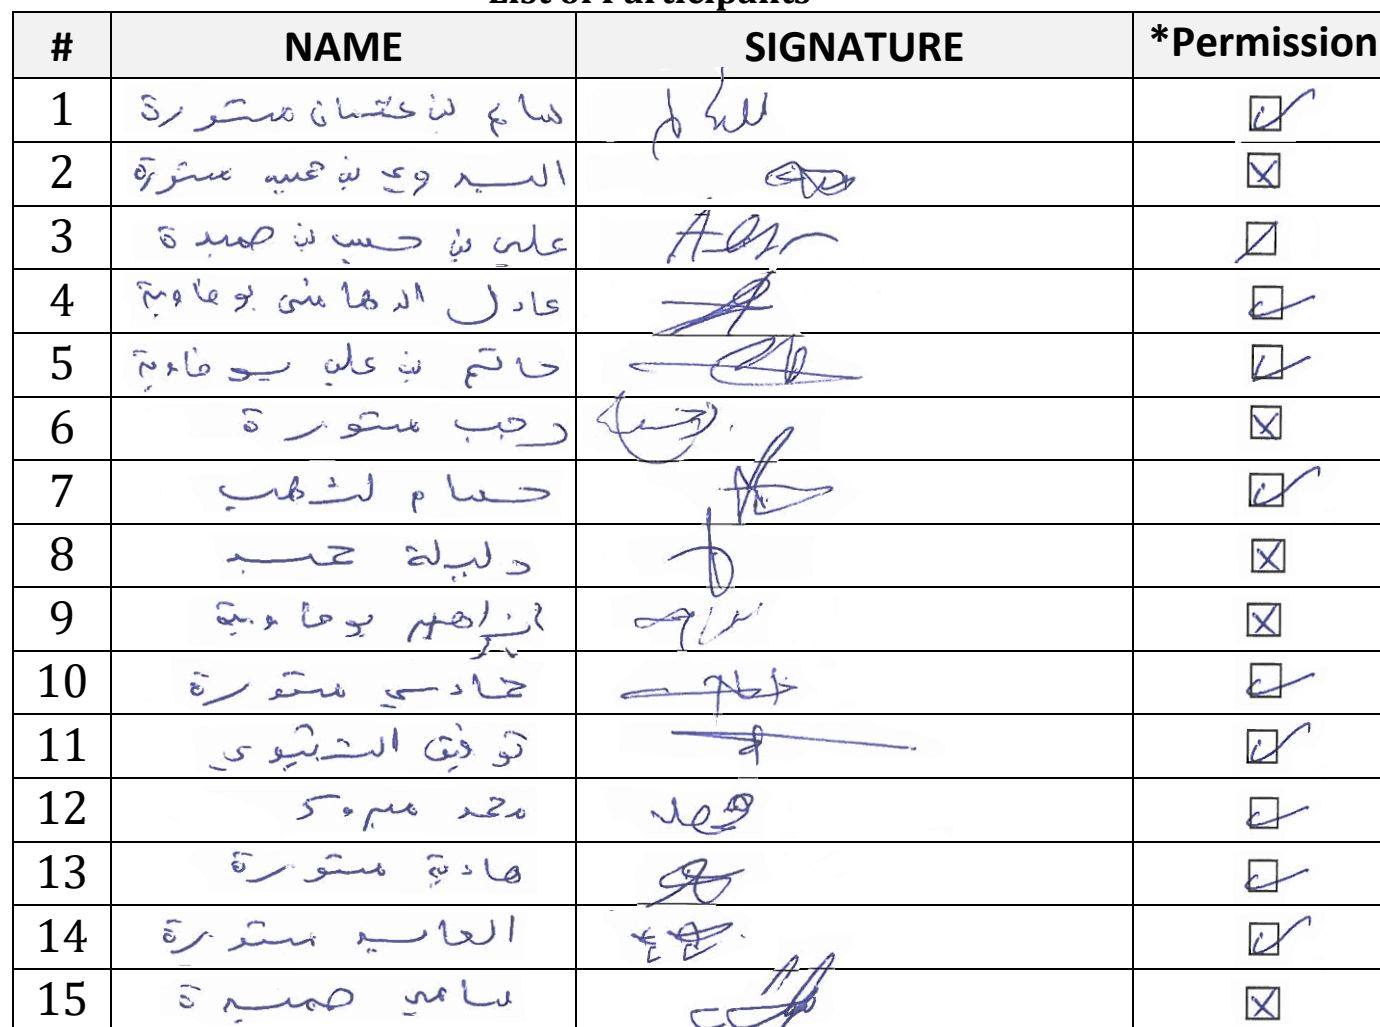 List of Participants
# NAME SIGNATURE *Permission
1 سالم بن عثمان مستورة
2 السيد بن مستورة
3 علي بن حسين بن حميدة
4 عادل الهاشمي بوعاوية
5 حاتم بن علي بوعاوية
6 رجب مستورة
7 حسام لشهب
8 دليلة حميد
9 ابراهيم بوعاوية
10 حمادي مستورة
11 توفيق الشتيوي
12 محمد مبروك
13 هادية مستورة
14 العايد مستورة
15 سامي حميدة